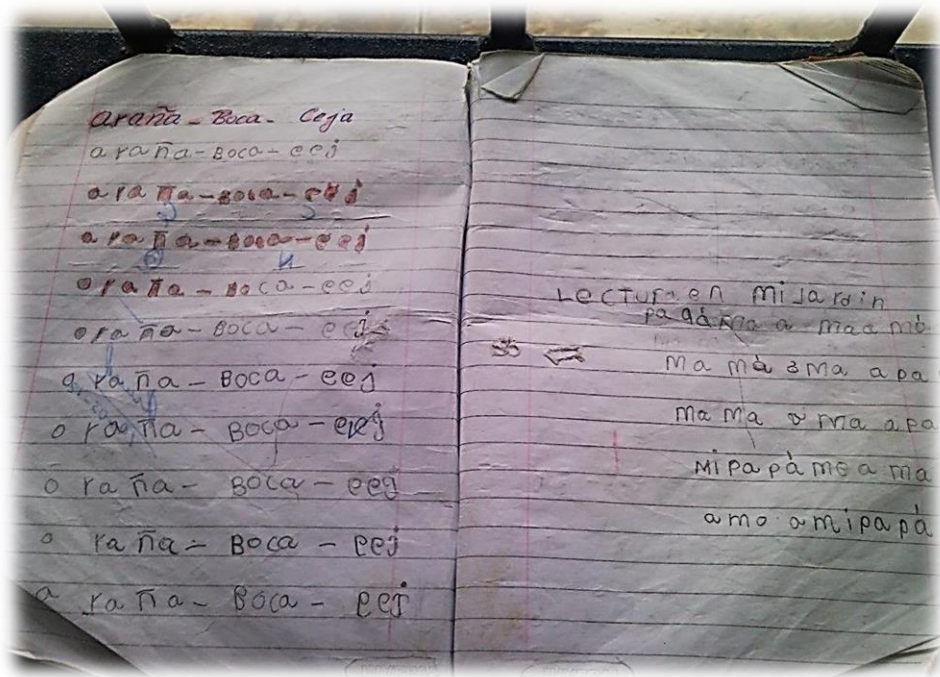 araña - Boca - Ceja
araña - Boca - eej
araña - Boca - eej
araña - Boca - eej
oraña - Boca - eej
oraña - Boca - eej
araña - Boca - eej
oraña - Boca - eej
oraña - Boca - eej
oraña - Boca - eej
araña - Boca - eej
Lectur en mi Jardin
ma má ama a pa
ma ma ama a pa
Mi pa pà me a ma
amo a mi papá